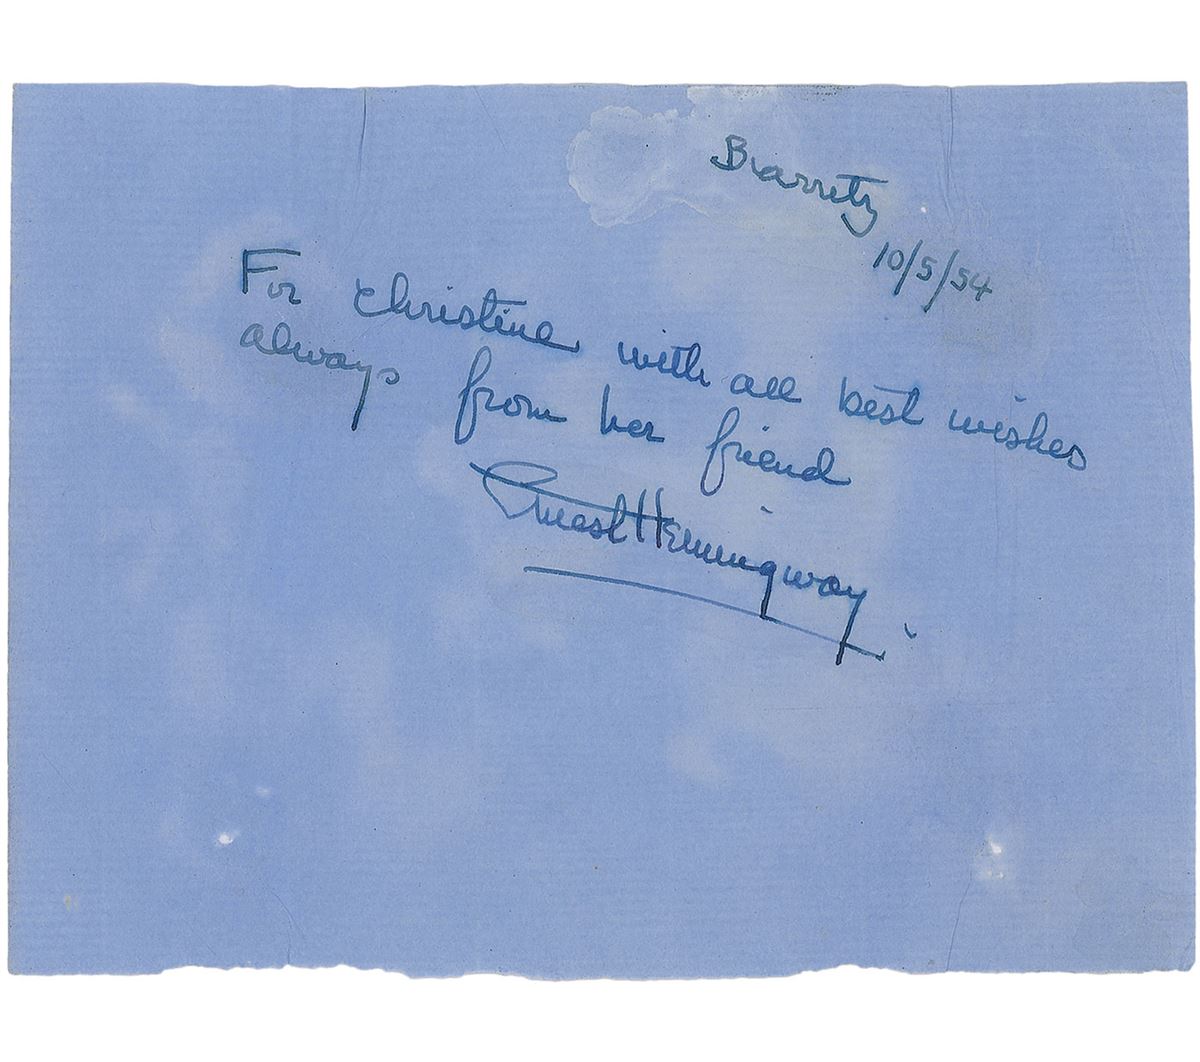 Biarritz
10/5/54
For Christine with all best wishes
always from her friend
Ernest Hemingway.